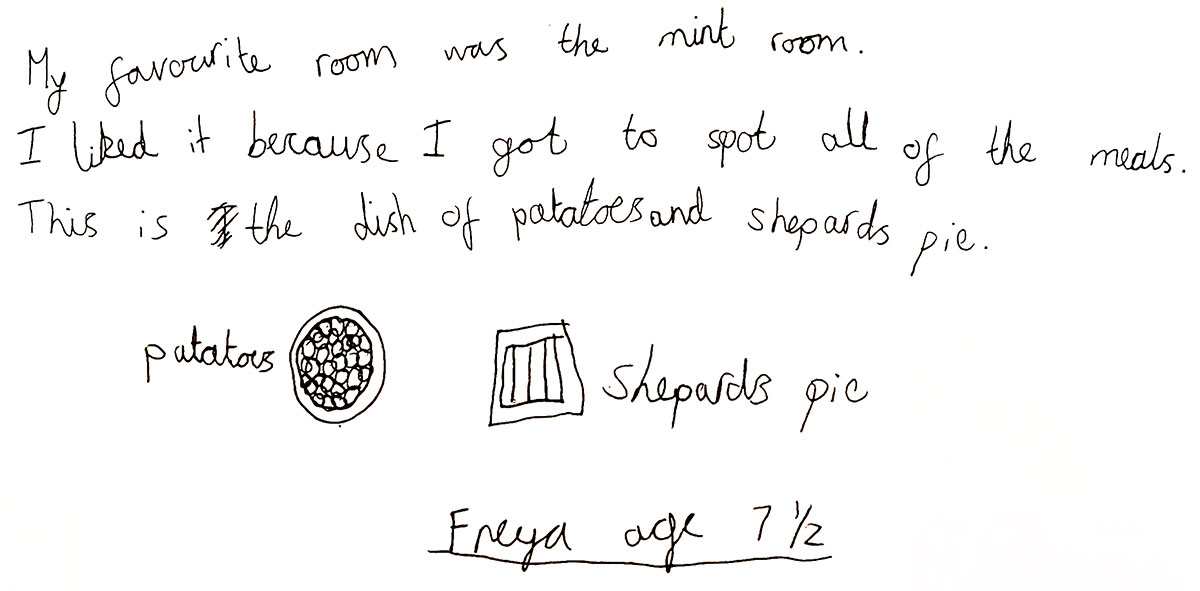 My favourite room was the mint room.
I liked it because I got to spot all of the meals.
This is the dish of patatoes and shepards pie.
patatoes
shepards pie
Freya age 7 ½